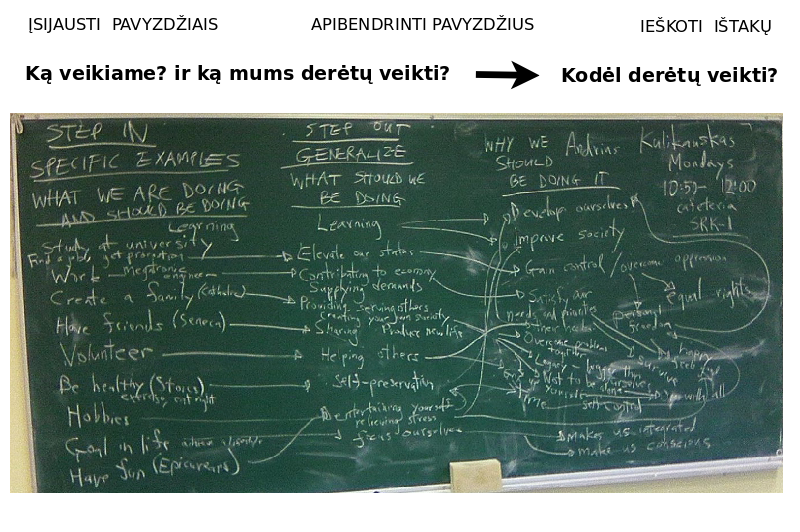 ĮSIJAUSTI PAVYZDŽIAIS
APIBENDRINTI PAVYZDŽIUS
IEŠKOTI IŠTAKŲ
Ką veikiame? ir ką mums derėtų veikti?
Kodėl derėtų veikti?
STEP IN
SPECIFIC EXAMPLES
WHAT WE ARE DOING
AND SHOULD BE DOING
Learning
Study at university
Find a job, get promotion
Work
Create a family (Catholics)
Have friends (Seneca)
Volunteer
Be healthy (Stoics)
exercise, eat right
Hobbies
Goal in life
Have fun (Epicureans)
STEP OUT
GENERALIZE
WHAT SHOULD WE
BE DOING
Learning
Elevate our status
Contributing to economy
Supplying demands
Providing serving others
creating your own society
Sharing Produce new life
Helping others
Self-preservation
entertaining yourself
relieving stress
focus ourselves
WHY WE
SHOULD
BE DOING IT
Develop ourselves
Improve society
Gain control / overcome oppression
equal rights
Satisfy our
needs and priorities
their needs
personal
freedom
Overcome problems
together
Legacy
Not to be ourselves
self control
makes us integrated
make us conscious
Andrius Kulikauskas
Mondays
10:50 - 12:00
cafeteria
SRK-I